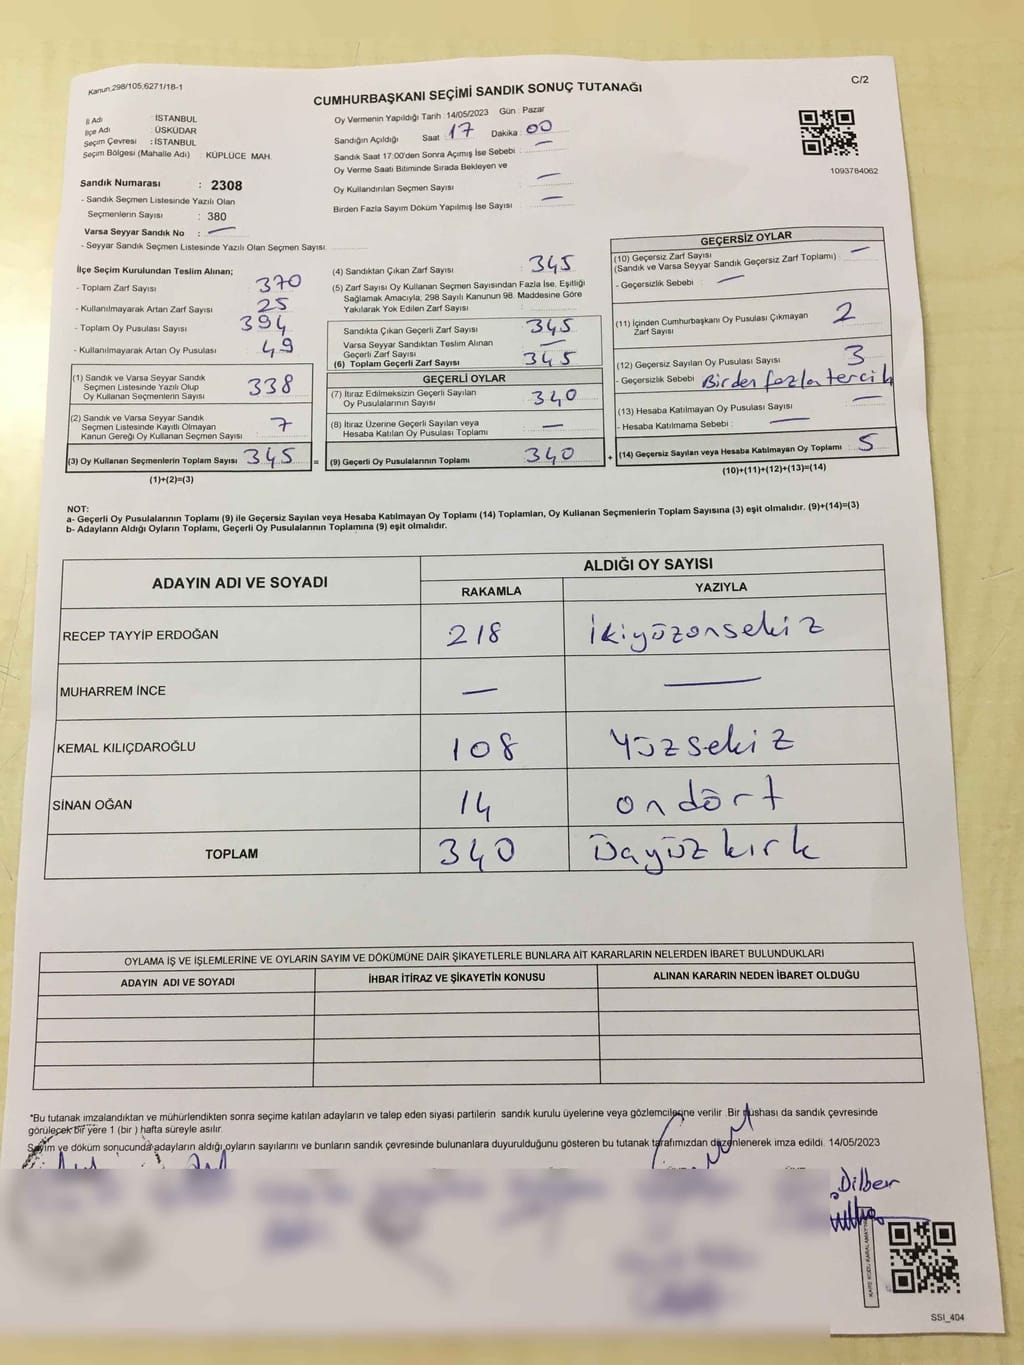 Kanun.298/105,6271/18-1
C/2
CUMHURBAŞKANI SEÇİMİ SANDIK SONUÇ TUTANAĞI
İl Adı : İSTANBUL
İlçe Adı : ÜSKÜDAR
Seçim Çevresi : İSTANBUL
Seçim Bölgesi (Mahalle Adı) : KÜPLÜCE MAH.
Sandık Numarası : 2308
- Sandık Seçmen Listesinde Yazılı Olan
Seçmenlerin Sayısı : 380
Varsa Seyyar Sandık No : —
- Seyyar Sandık Seçmen Listesinde Yazılı Olan Seçmen Sayısı :
Oy Vermenin Yapıldığı Tarih : 14/05/2023 Gün : Pazar
Sandığın Açıldığı Saat : 17 Dakika : 00
Sandık Saat 17:00'den Sonra Açımış İse Sebebi : —
Oy Verme Saati Bitiminde Sırada Bekleyen ve
Oy Kullandırılan Seçmen Sayısı : —
Birden Fazla Sayım Döküm Yapılmış İse Sayısı : —
1093764062
İlçe Seçim Kurulundan Teslim Alınan;
- Toplam Zarf Sayısı : 370
- Kullanılmayarak Artan Zarf Sayısı : 25
- Toplam Oy Pusulası Sayısı : 394
- Kullanılmayarak Artan Oy Pusulası : 49
(1) Sandık ve Varsa Seyyar Sandık
Seçmen Listesinde Yazılı Olup
Oy Kullanan Seçmenlerin Sayısı : 338
(2) Sandık ve Varsa Seyyar Sandık
Seçmen Listesinde Kayıtlı Olmayan
Kanun Gereği Oy Kullanan Seçmen Sayısı : 7
(3) Oy Kullanan Seçmenlerin Toplam Sayısı : 345
(1)+(2)=(3)
(4) Sandıktan Çıkan Zarf Sayısı : 345
(5) Zarf Sayısı Oy Kullanan Seçmen Sayısından Fazla İse, Eşitliği
Sağlamak Amacıyla; 298 Sayılı Kanunun 98. Maddesine Göre
Yakılarak Yok Edilen Zarf Sayısı :
Sandıkta Çıkan Geçerli Zarf Sayısı : 345
Varsa Seyyar Sandıktan Teslim Alınan
Geçerli Zarf Sayısı : —
(6) Toplam Geçerli Zarf Sayısı : 345
GEÇERLİ OYLAR
(7) İtiraz Edilmeksizin Geçerli Sayılan
Oy Pusulalarının Sayısı : 340
(8) İtiraz Üzerine Geçerli Sayılan veya
Hesaba Katılan Oy Pusulası Toplamı : —
= (9) Geçerli Oy Pusulalarının Toplamı : 340 +
GEÇERSİZ OYLAR
(10) Geçersiz Zarf Sayısı : —
(Sandık ve Varsa Seyyar Sandık Geçersiz Zarf Toplamı)
- Geçersizlik Sebebi : —
(11) İçinden Cumhurbaşkanı Oy Pusulası Çıkmayan
Zarf Sayısı : 2
(12) Geçersiz Sayılan Oy Pusulası Sayısı : 3
- Geçersizlik Sebebi : Birden fazla tercih
(13) Hesaba Katılmayan Oy Pusulası Sayısı : —
- Hesaba Katılmama Sebebi : —
(14) Geçersiz Sayılan veya Hesaba Katılmayan Oy Toplamı : 5
(10)+(11)+(12)+(13)=(14)
NOT:
a- Geçerli Oy Pusulalarının Toplamı (9) ile Geçersiz Sayılan veya Hesaba Katılmayan Oy Toplamı (14) Toplamları, Oy Kullanan Seçmenlerin Toplam Sayısına (3) eşit olmalıdır. (9)+(14)=(3)
b- Adayların Aldığı Oyların Toplamı, Geçerli Oy Pusulalarının Toplamına (9) eşit olmalıdır.
ADAYIN ADI VE SOYADI ALDIĞI OY SAYISI
RAKAMLA YAZIYLA
RECEP TAYYİP ERDOĞAN 218 İkiyüzonsekiz
MUHARREM İNCE — —
KEMAL KILIÇDAROĞLU 108 Yüzsekiz
SİNAN OĞAN 14 ondört
TOPLAM 340 Üçyüzkırk
OYLAMA İŞ VE İŞLEMLERİNE VE OYLARIN SAYIM VE DÖKÜMÜNE DAİR ŞİKAYETLERLE BUNLARA AİT KARARLARIN NELERDEN İBARET BULUNDUKLARI
ADAYIN ADI VE SOYADI İHBAR İTİRAZ VE ŞİKAYETİN KONUSU ALINAN KARARIN NEDEN İBARET OLDUĞU
*Bu tutanak imzalandıktan ve mühürlendikten sonra seçime katılan adayların ve talep eden siyasi partilerin sandık kurulu üyelerine veya gözlemcilerine verilir. Bir nüshası da sandık çevresinde
görülecek bir yere 1 (bir ) hafta süreyle asılır.
Sayım ve döküm sonucunda adayların aldığı oyların sayılarını ve bunların sandık çevresinde bulunanlara duyurulduğunu gösteren bu tutanak tarafımızdan düzenlenerek imza edildi. 14/05/2023
Dilber
SSI_404